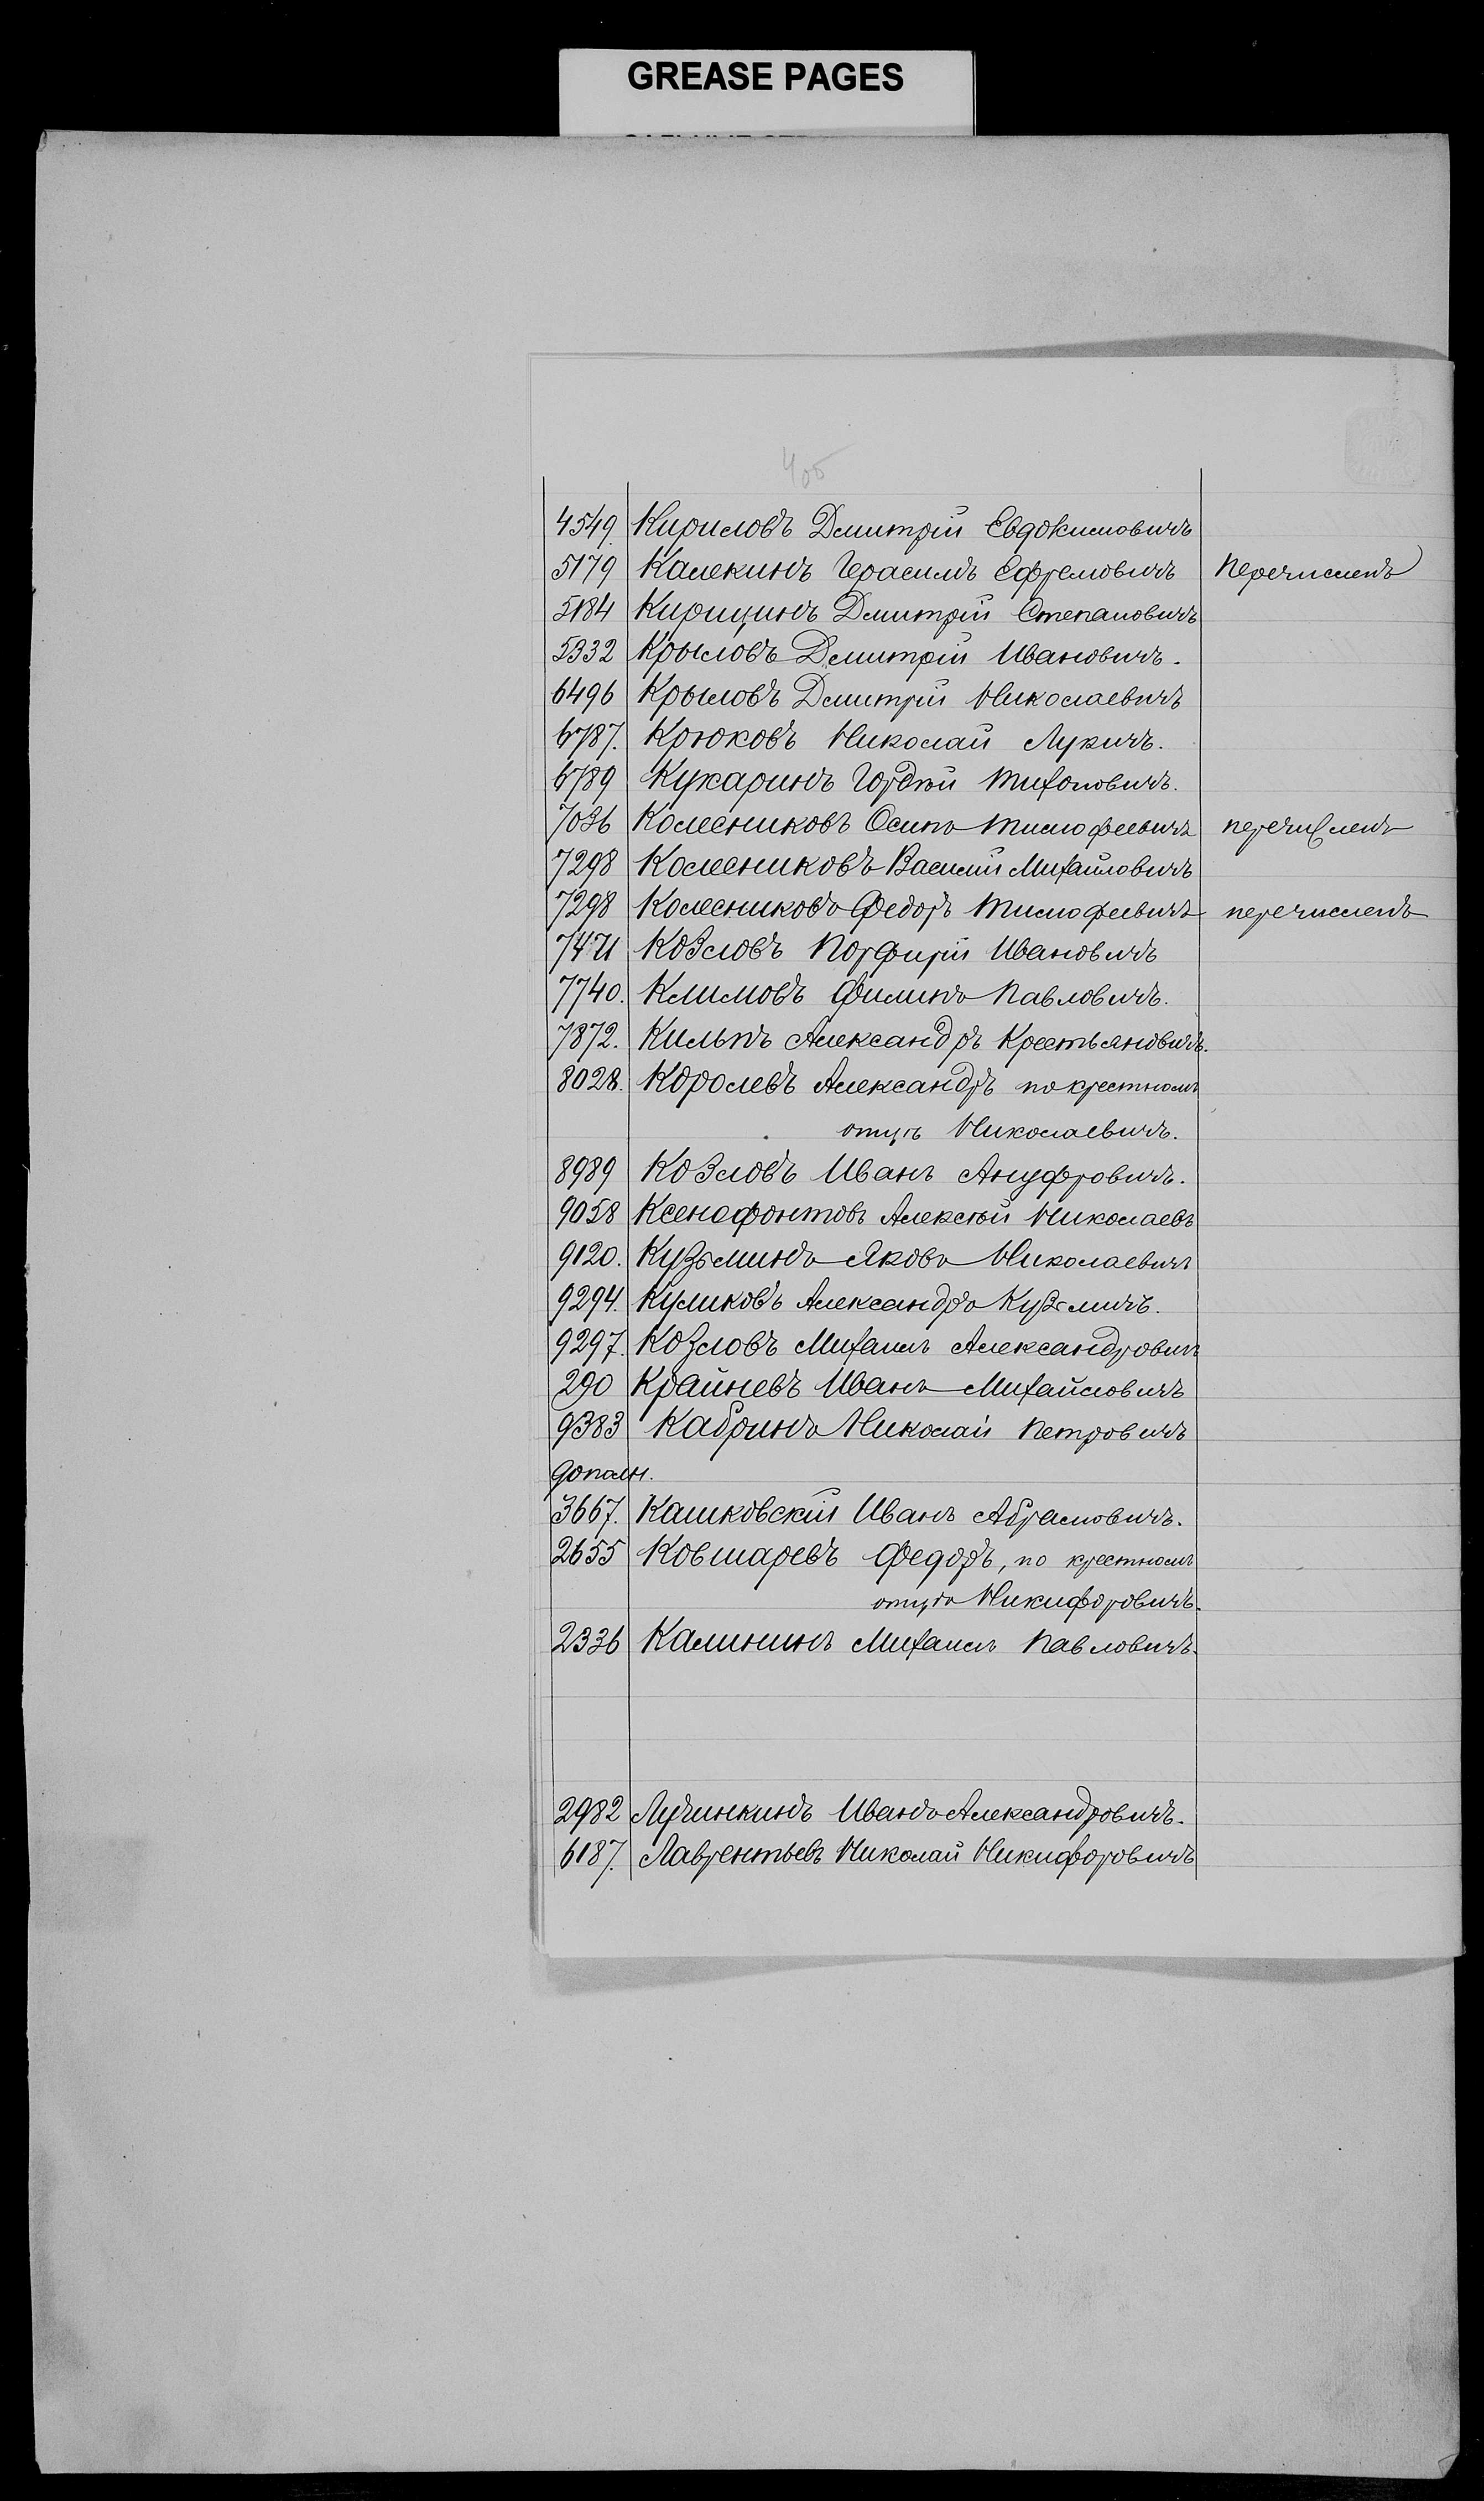 GREASE PAGES
4об
4549. Кириловъ Дмитрій Евдокимовичъ
5179 Калекинъ Герасимъ Ефремовичъ перечисленъ
5184 Кирицинъ Дмитрій Степановичъ
5332 Крыловъ Дмитрій Ивановичъ.
6496 Крыловъ Дмитрій Николаевичъ
6787. Крюковъ Николай Лукичъ.
6789 Кукаринъ Гордѣй Тихоновичъ.
7036 Колесниковъ Осипъ Тимофеевичъ перечисленъ
7298 Колесниковъ Василій Михайловичъ
7298 Колесниковъ Федоръ Тимофеевичъ перечисленъ
7471 Козловъ Порфирій Ивановичъ
7740. Климовъ Филипъ Павловичъ.
7872. Кильпъ Александръ Крестьяновичъ.
8028. Королевъ Александръ по крестном
отцу Николаевичъ.
8989 Козловъ Иванъ Ануфровичъ.
9058 Ксенофонтовъ Алексѣй Николаевъ
9120. Кузьминъ Яковъ Николаевичъ
9294. Куликовъ Александръ Кузьмичъ.
9297. Козловъ Михаилъ Александровичъ
290 Крайневъ Иванъ Михайловичъ
9383 Кабринъ Николай Петровичъ
дополн.
3667. Кашковскій Иванъ Абрамовичъ.
2655 Ковшаревъ Федоръ, по крестном
отцу Никифоровичъ.
2336 Калининъ Михаилъ Павловичъ.
2982 Лучинкинъ Иванъ Александровичъ.
6187. Лаврентьевъ Николай Никифоровичъ